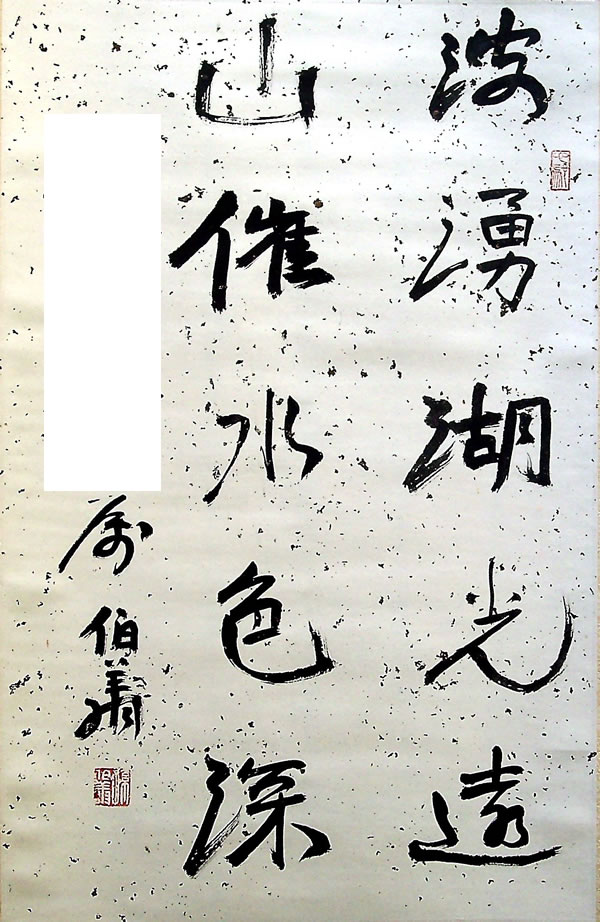 波湧湖光遠
山催水色深
伯